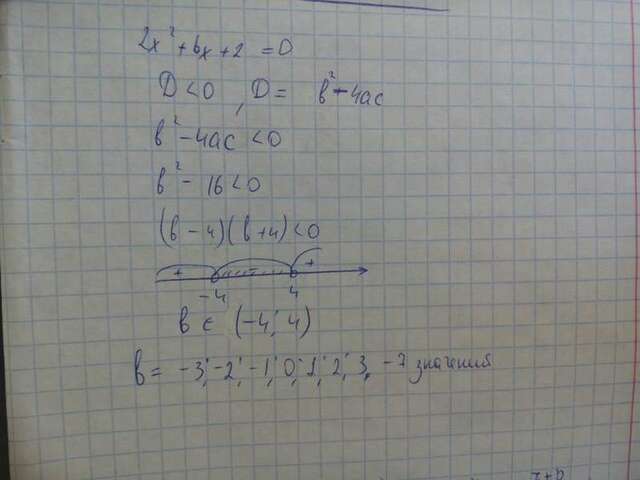 2x² + bx + 2 = 0
D < 0, D = b² - 4ac
b² - 4ac < 0
b² - 16 < 0
(b - 4)(b + 4) < 0
+ - +
-4 4
b ∈ (-4; 4)
b = -3; -2; -1; 0; 1; 2; 3. - 7 значений